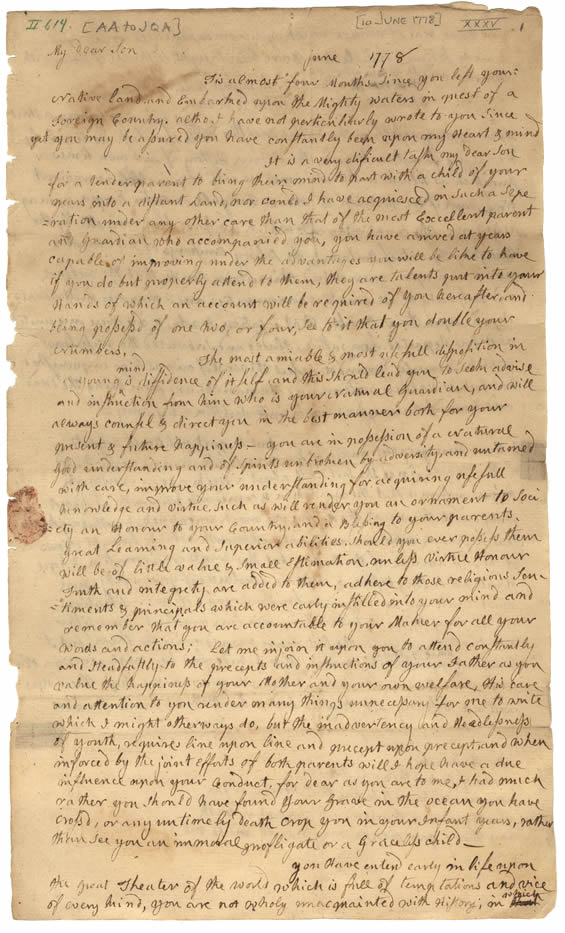 II 614. [AA to JQA] [10 JUNE 1778] XXXV 1
My dear Son
June 1778
Tis almost four Months Since you left your
Native land and Embarked upon the Mighty waters in quest of a
Foreign Country. altho I have not perticuliarly wrote to you Since
yet you may be assured you have constantly been upon my Heart & mind
It is a very dificult task my dear Son
for a tender parent to bring their mind to part with a child of your
years into a distant Land, nor could I have acquiesced in Such a Sepe
=ration under any other care than that of the most Excellent parent
and Guardian who accompanied you, you have arived at years
capable of improving under the advantages you will be like to have
if you do but properly attend to them, they are talents put into your
Hands of which an account will be required of you hereafter, and
being possessd of one, two, or four, See to it that you double your
Numbers.
The most amiable & most usefull disposition in
a young mind is diffidence of itself, and this should lead you to Seek advise
and instruction from him who is your Natural Guardian, and will
always counsel & direct you in the best manner both for your
present & future happiness — you are in possession of a Natural
good understanding and of Spirits unbroken by adversity, and untamed
with care, improve your understanding for acquiring usefull
knowledge and virtue, Such as will render you an ornament to Soci
=ety an Honour to your Country, and a Blessing to your parents.
great Learning and Superior abilities, Should you ever possess them
will be of little value & Small Estimation, unless virtue Honour
Truth and integrety are added to them, adhere to those religious Sen
=timents & principals which were early instilled into your mind and
remember that you are accountable to your Maker for all your
words and actions; Let me injoin it upon you to attend constantly
and Steadfastly to the precepts and instructions of your Father as you
value the happiness of your Mother and your own welfare, His care
and attention to you render many things unnecessary for me to write
which I might otherways do, but the inadvertency and Heedlessness
of youth, requires line upon line and precept upon precept, and when
inforced by the joint efforts of both parents will I hope have a due
influence upon your Conduct, for dear as you are to me, I had much
rather you should have found your Grave in the ocean you have
crossd, or any untimely death crop you in your Infant years, rather
than see you an immoral profligate or a Graceless child —
you Have enterd early in life upon
the great Theater of the world which is full of temptations and vice
of every kind, you are not wholy unacquainted with History, in which